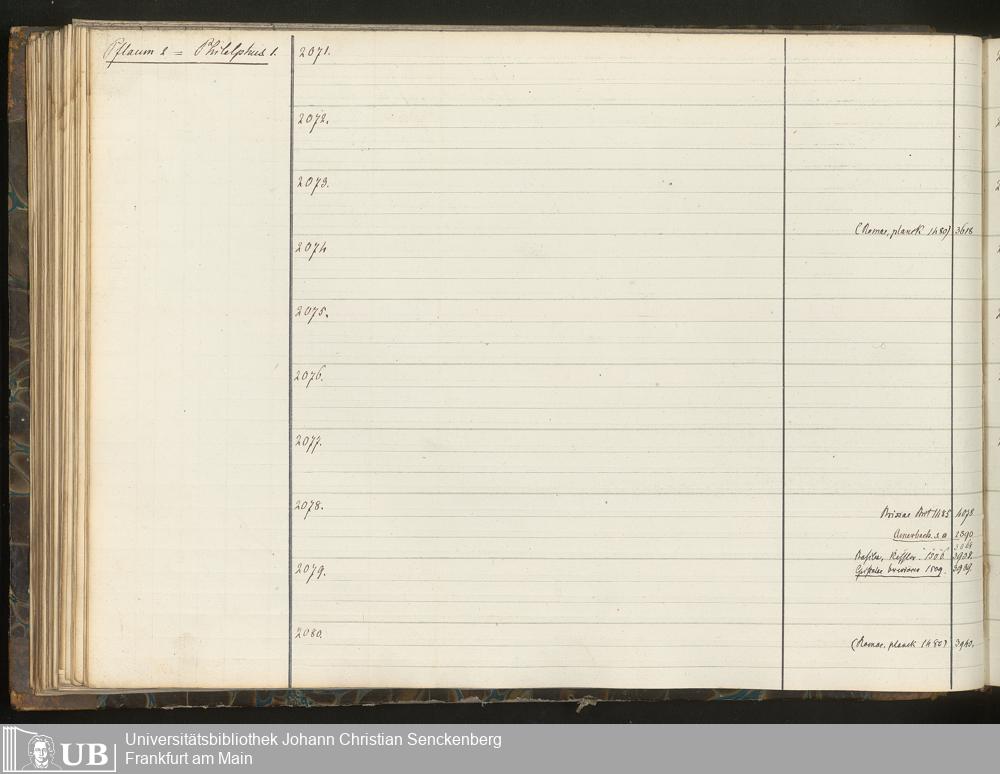 Pflaum 2 = Philelphus 1.
2071.
2072.
2073.
(Romae, planck 1480) 3618
2074
2075.
2076.
2077.
2078.
Brixiae Brit 1485 4078.
Amerbach. s. a 1390
3061
Basilee, Keffler. 1506 3938.
2079.
Epistolae breviores 1509. 3939.
2080.
(Romae, planck 1480) 3940.
UB
Universitätsbibliothek Johann Christian Senckenberg
Frankfurt am Main